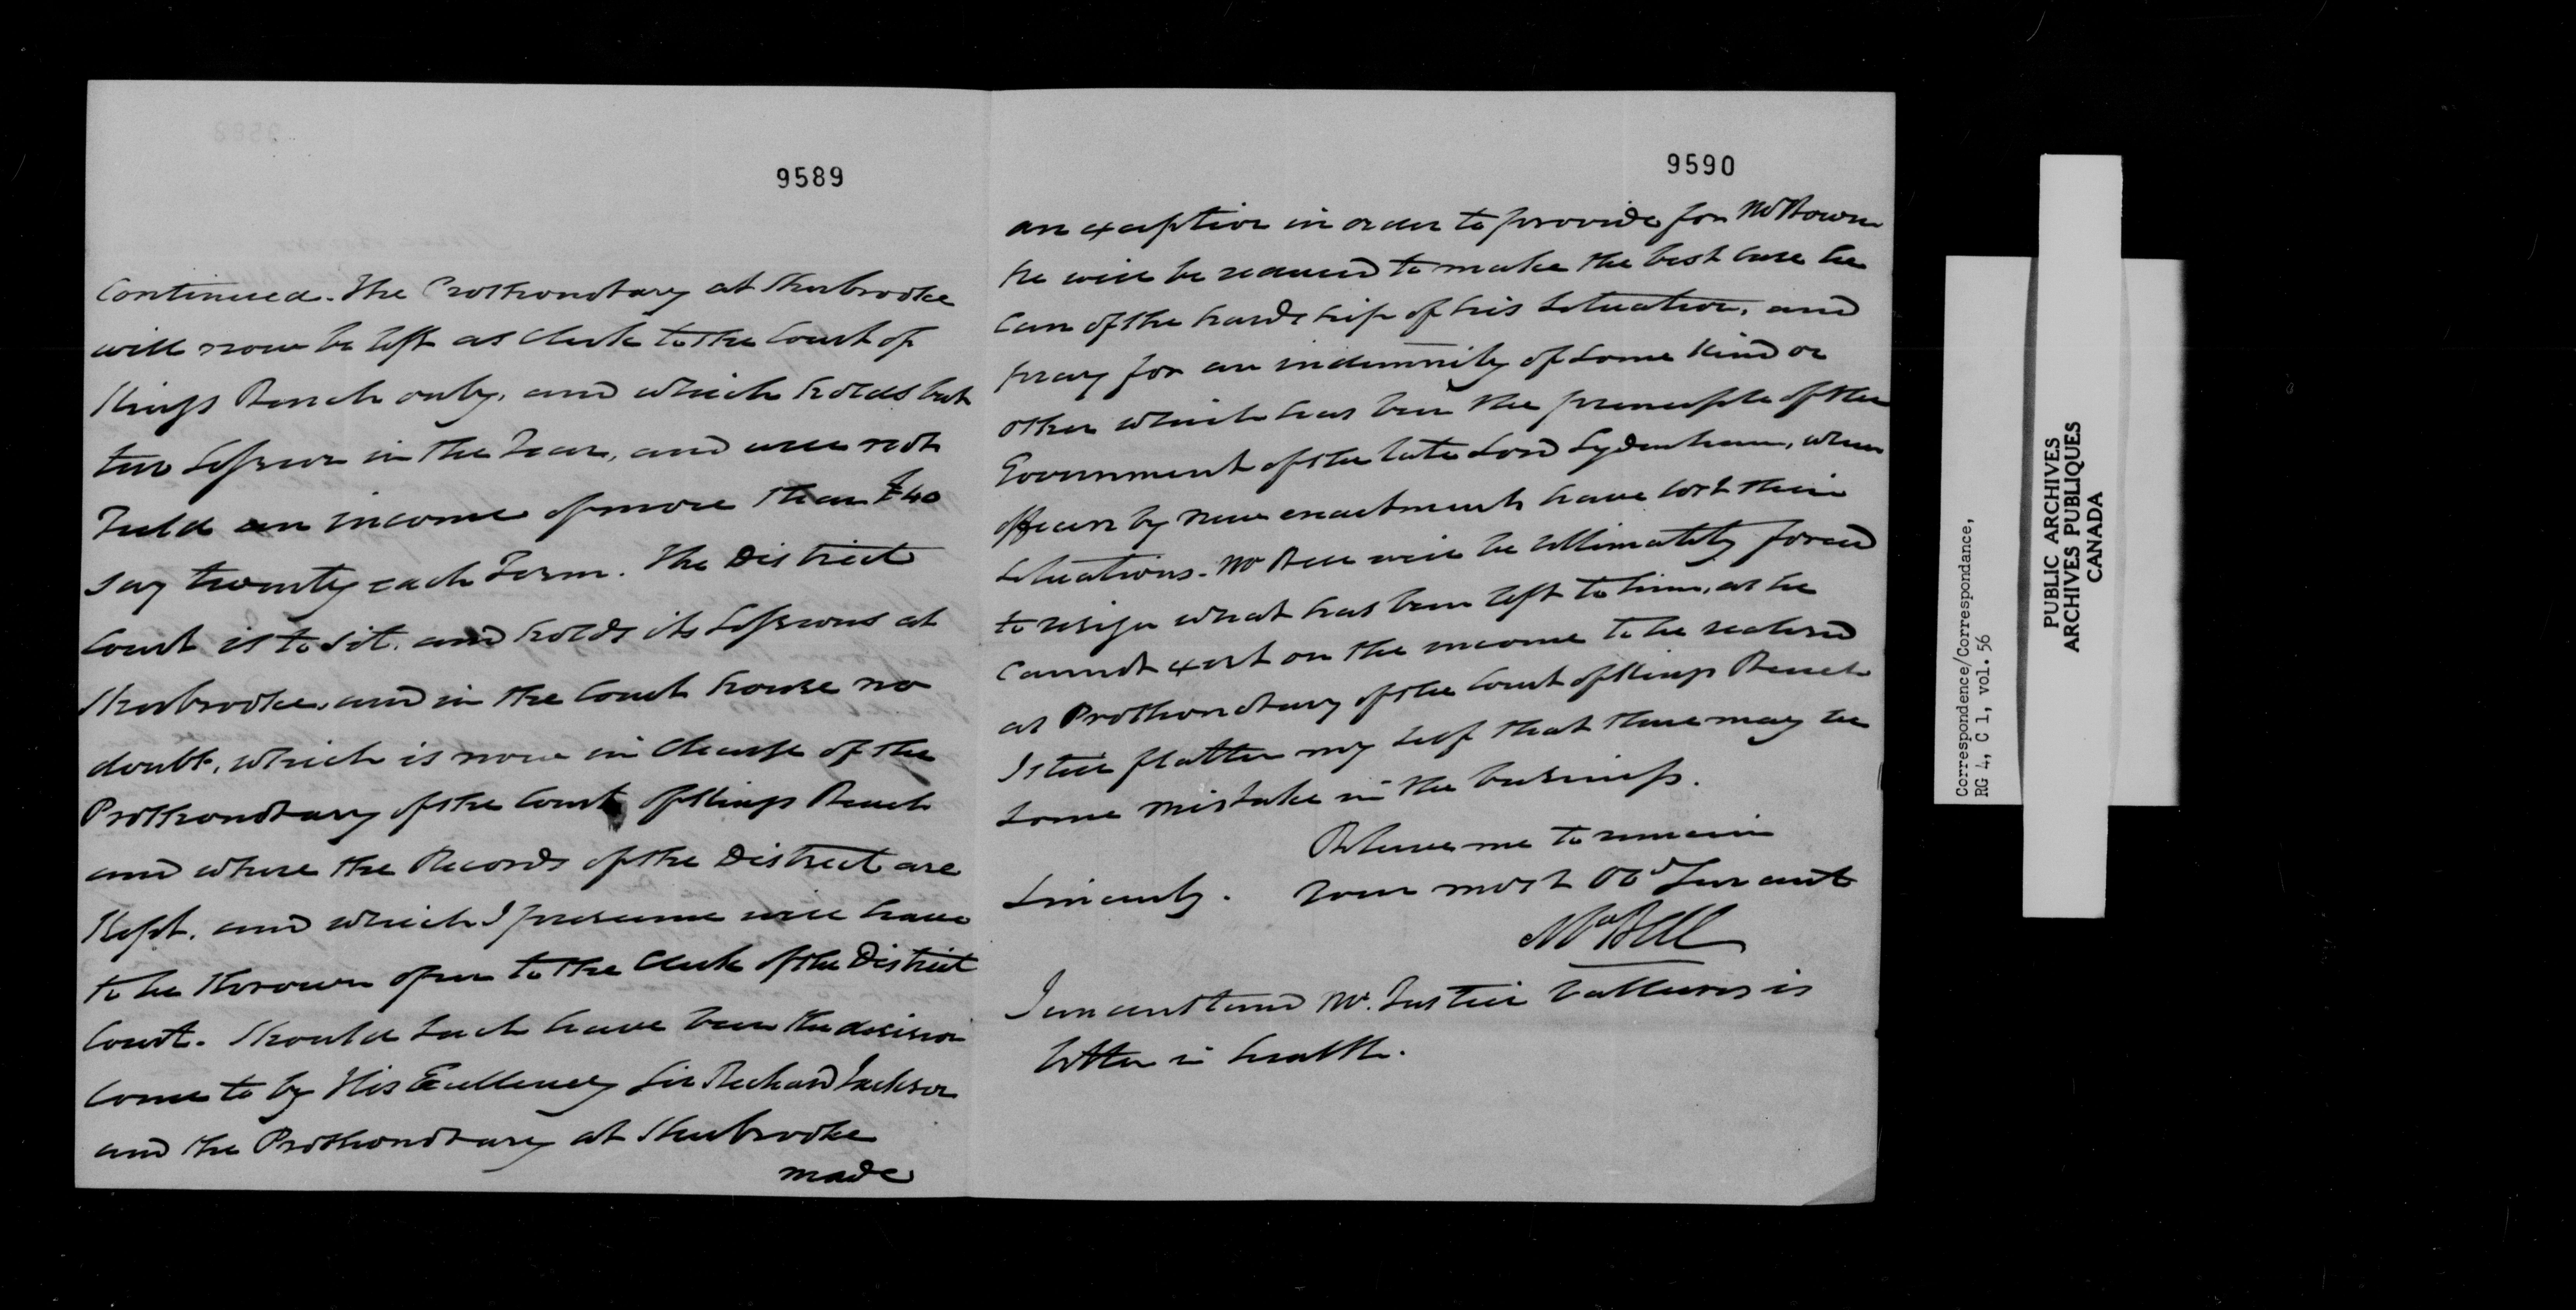 9589
Continued. The Prothonotary at Sherbrooke
will now be left as Clerk to the Court of
Kings Bench only, and which holds but
two Session in the Year, and will not
Yield an income of more than £40
say twenty each Term. The District
Court is to sit, and holds its Sessions at
Sherbrooke, and in the Court house no
doubt, which is now in Charge of the
Prothonotary of the Court of Kings Bench
and where the Records of the District are
Kept, and which I presume will have
to be thrown open to the Clerk of the District
Court. Should such have been the decision
come to by His Excellency Sir Richard Jackson
and the Prothonotary at Sherbrooke
made
9590
an exception in order to provide for Mr
he will be reduced to make the best case he
can of the hardship of his Situation, and
pray for an indemnity of some kind or
other which has been the principle of the
Government of the late Lord Sydenham, when
officers by new enactments have lost their
Situations. Mr Bell will be ultimately forced
to resign what has been left to him, as he
cannot exist on the income to be realised
as Prothonotary of the Court of Kings Bench
I still flatter my self that there may be
some mistake in the business.
Believe me to remain
Sincerely. Your most Obd Servant
Bell
I understand Mr. Justice Vallieres is
better in health.
Correspondence/Correspondance,
RG 4, C 1, vol. 56
PUBLIC ARCHIVES
ARCHIVES PUBLIQUES
CANADA